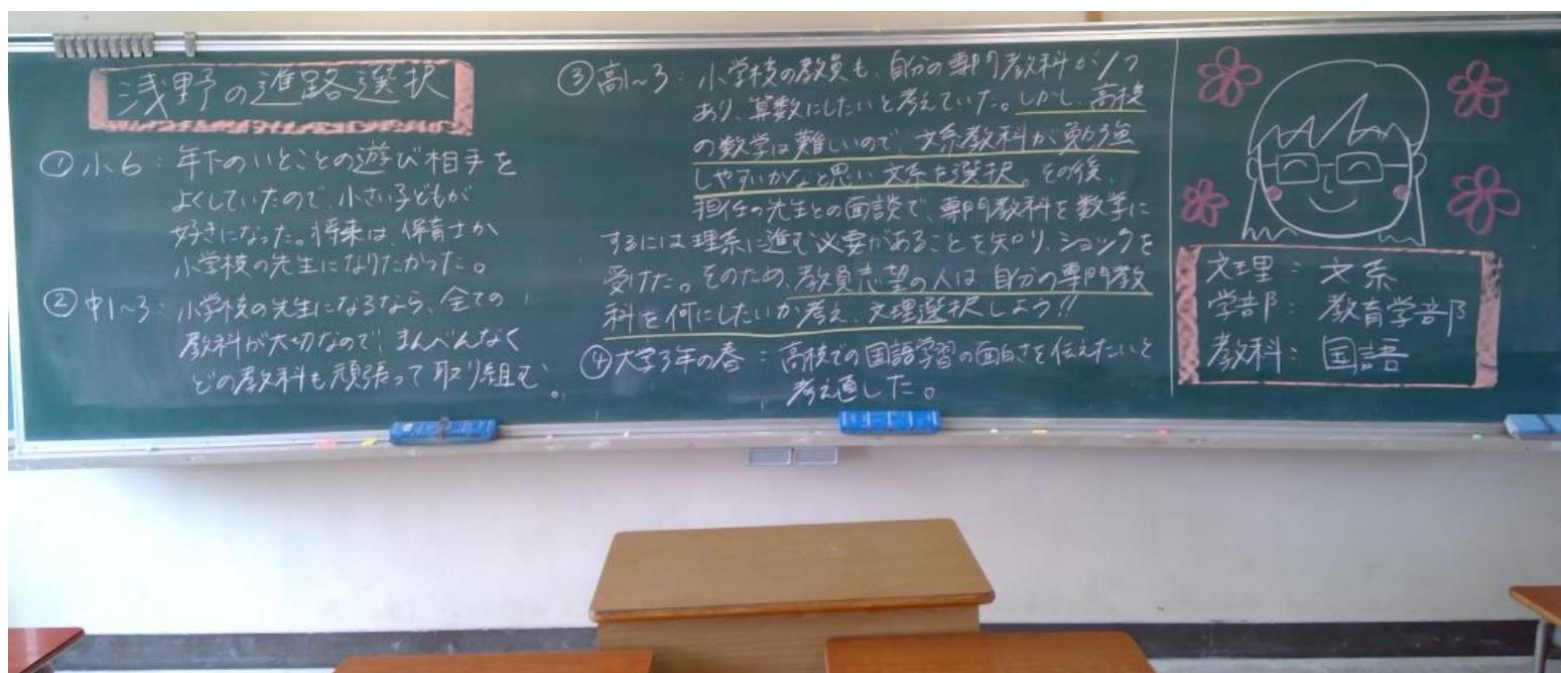 浅野の進路選択
①小6：年下のいとことの遊び相手を
よくしていたので、小さい子どもが
好きになった。将来は、保育士か
小学校の先生になりたかった。
②中1~3：小学校の先生になるなら、全ての
教科が大切なので、まんべんなく
どの教科も頑張って取り組む。
③高1~3：小学校の教員も、自分の専門教科が1つ
あり、算数にしたいと考えていた。しかし、高校
の数学は難しいので、文系教科が勉強
しやすいかなと思い文系を選択。その後、
担任の先生との面談で、専門教科を数学に
するには理系に進む必要があることを知り、ショックを
受けた。そのため、教員志望の人は自分の専門教
科を何にしたいか考え、文理選択しよう!!
④大学3年の春：高校での国語学習の面白さを伝えたいと
考え直した。
文理：文系
学部：教育学部
教科：国語